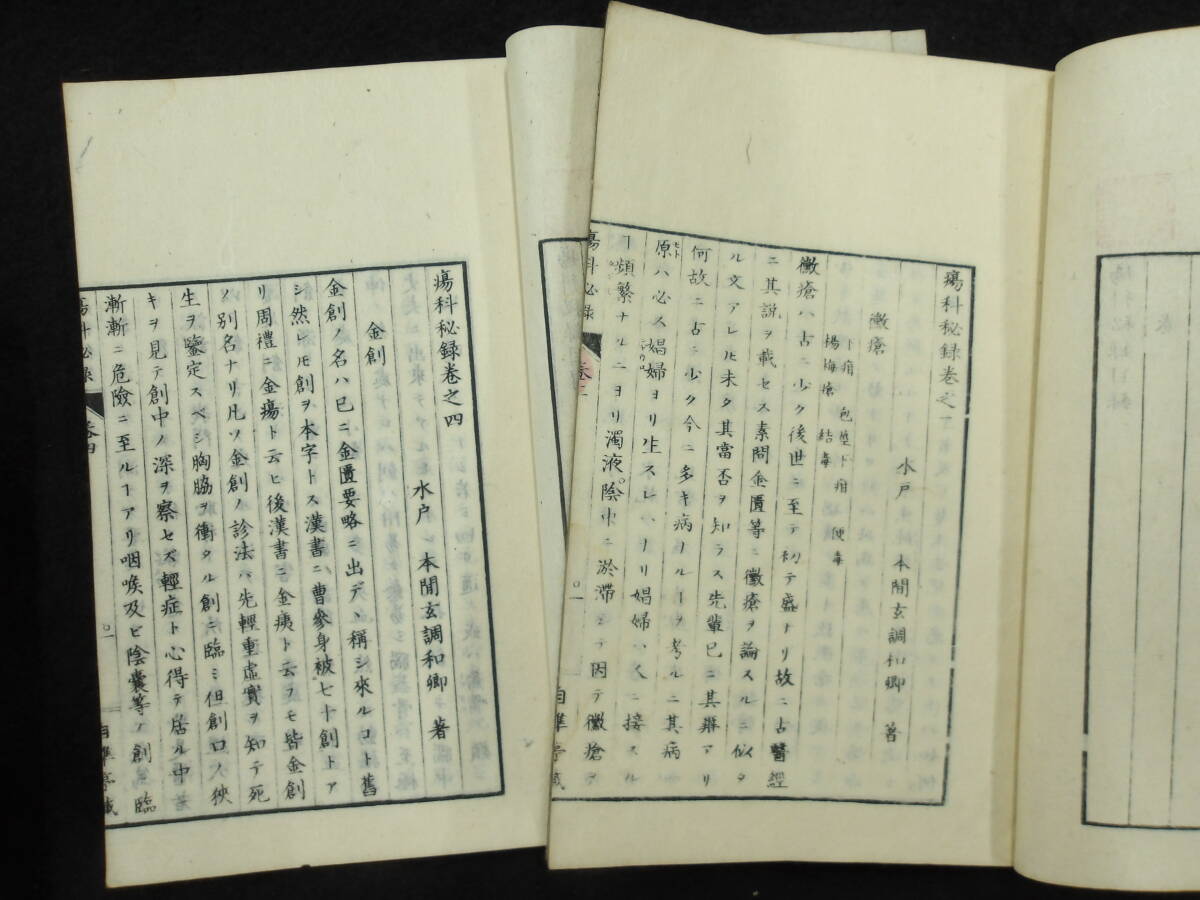 瘍科秘録巻之一
水戸 本間玄調和卿 著
黴瘡
下疳 包莖下疳 便毒
楊梅瘡 結毒
黴瘡ハ古ニ少ク後世ニ至テ初テ盛ナリ故ニ古醫經
ニ其説ヲ載セス素問金匱等ニ黴瘡ヲ論スルニ似タ
ル文アレ𪜈未タ其當否ヲ知ラス先輩已ニ其辨アリ
何故ニ古ニ少ク今ニ多キ病ナルヿヲ考ルニ其病
原ハ必ス娼婦ヨリ生スレハナリ娼婦ハ人ニ接スル
ヿ頻繁ナルニヨリ濁液陰中ニ淤滯シテ因テ黴瘡ヲ
瘍科秘録
自準亭藏
瘍科秘録巻之四
水戸 本間玄調和卿 著
金創
金創ノ名ハ已ニ金匱要略ニ出デヽ稱シ來ルコト舊
シ然レ𪜈創ヲ本字トス漢書ニ曹參身被七十創トア
リ周禮ニ金瘍ト云ヒ後漢書ニ金痍ト云フモ皆金創
ノ別名ナリ凡ソ金創ノ診法ハ先輕重虚實ヲ知テ死
生ヲ鑒定スベシ胸脇ヲ衝タル創ニ臨ミ但創口ノ狹
キヲ見テ創中ノ深ヲ察セズ輕症ト心得テ居ル中
漸漸ニ危險ニ至ルヿアリ咽喉及ビ陰嚢等ノ創ニ臨
瘍科秘録 巻四
自準亭藏